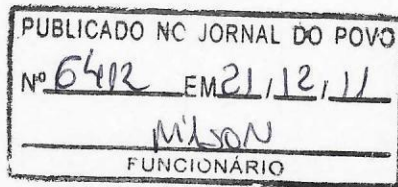 PUBLICADO NO JORNAL DO POVO
Nº 6412 EM 21, 12, 11
Nilson
FUNCIONÁRIO